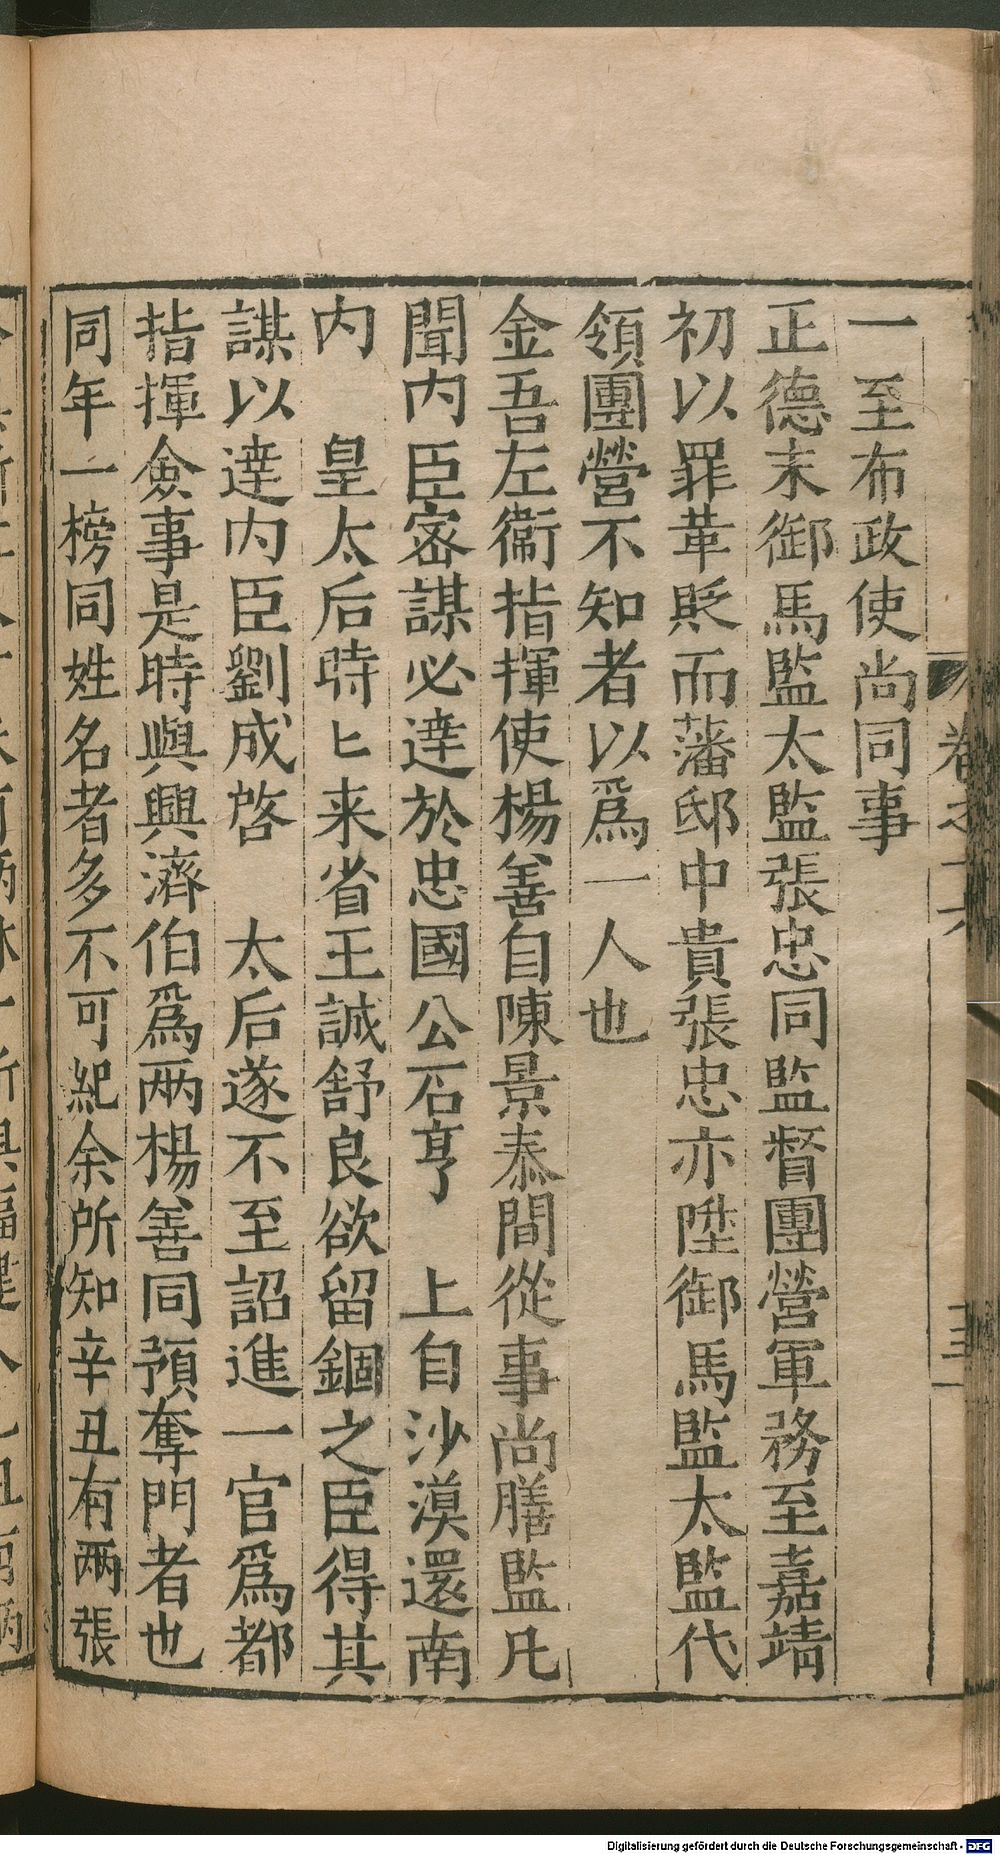 一至布政使尚同事
正德末御馬監太監張忠同監督團營軍務至嘉靖
初以罪革貶而藩邸中貴張忠亦陞御馬監太監代
領團營不知者以爲一人也
金吾左衞指揮使楊善自陳景泰間從事尚膳監凡
聞内臣宻謀必達於忠國公石亨　上自沙漠還南
内　皇太后時匕来省王誠舒良欲留錮之臣得其
謀以達内臣劉成啓　太后遂不至詔進一官爲都
指揮僉事是時與興濟伯爲两楊善同預奪門者也
同年一榜同姓名者多不可紀余所知辛丑有兩張
Digitalisierung gefördert durch die Deutsche Forschungsgemeinschaft - DFG